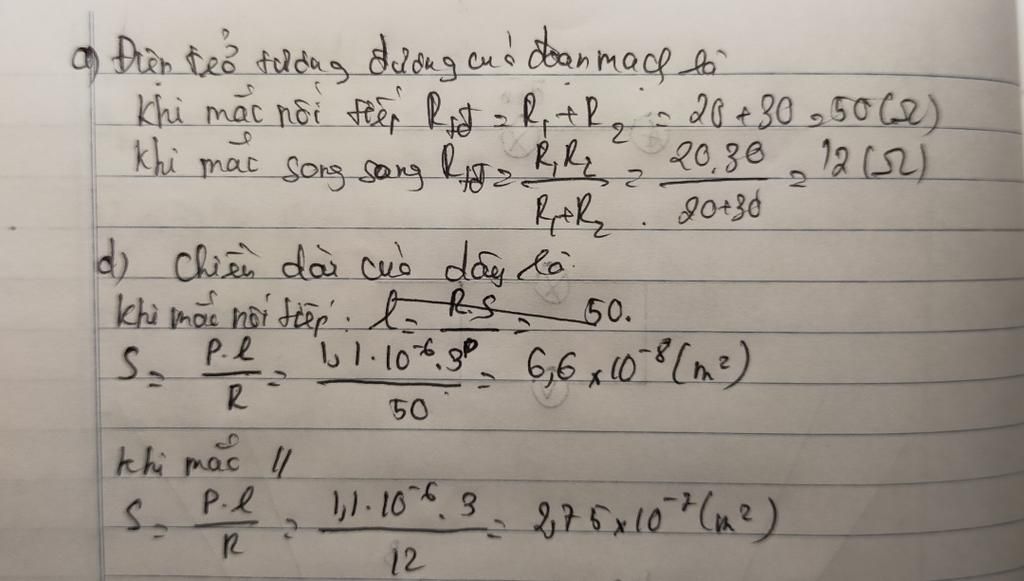 a) Điện trở tương đương của đoạn mạch là
Khi mắc nối tiếp Rtđ = R1 + R2 = 20 + 30 = 50 (Ω)
Khi mắc song song Rtđ = R1R2 / R1+R2 = 20.30 / 20+30 = 12 (Ω)
d) Chiều dài của dây là
Khi mắc nối tiếp: l = R.S = 50.
S = P.l / R = 1,1.10⁻⁶.3 / 50 = 6,6 x 10⁻⁸ (m²)
Khi mắc //
S = P.l / R = 1,1.10⁻⁶.3 / 12 = 2,75 x 10⁻⁷ (m²)